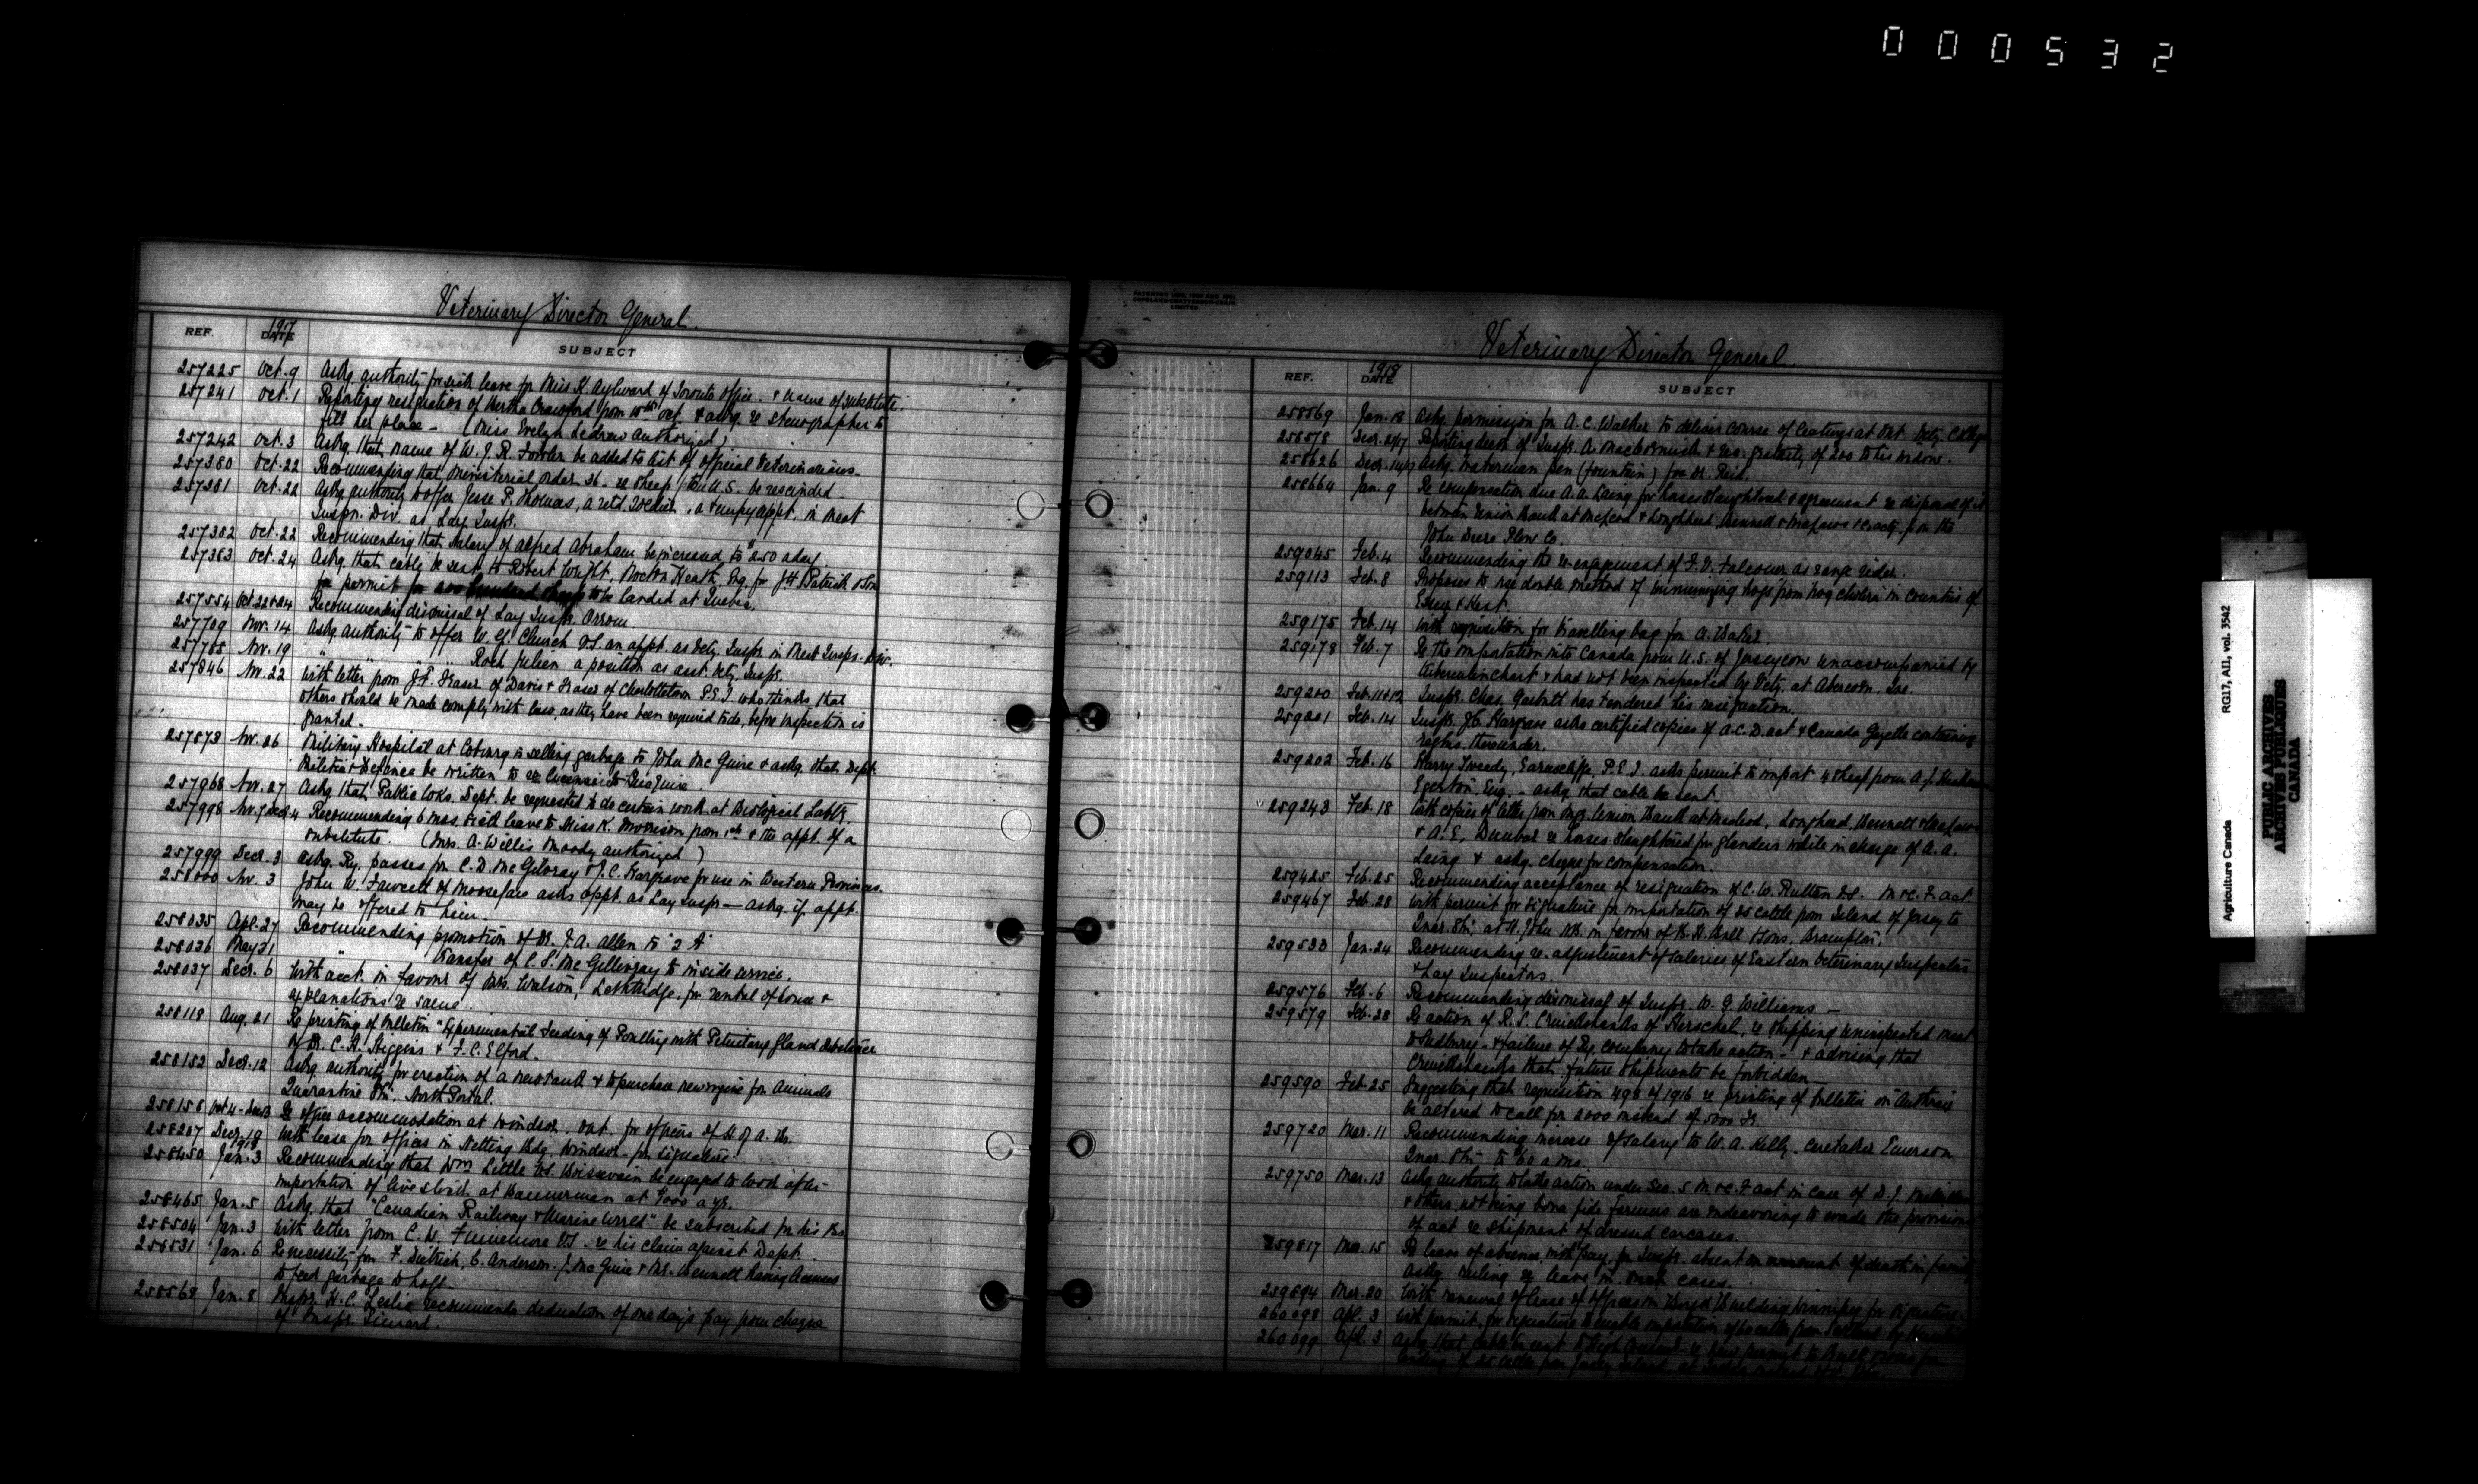 000532
Veterinary Director General.
REF. 1917 DATE SUBJECT
257225 Oct. 9 Askg authority for sick leave for Miss K. Aylward of Toronto office. & name of substitute.
257241 Oct. 1 Reporting resignation of Bertha Crawford from 10th Oct. & askg. re stenographer to
fill her place — (Miss Evelyn Ledrew authorized)
257242 Oct. 3 Askg. that name of W. J. R. Fowler be added to list of official Veterinarians.
257380 Oct. 22 Recommending that Ministerial order 36 - re sheep from U.S. be rescinded.
257381 Oct. 22 Askg authority to offer Jesse P. Thomas, a retd. soldier, a tempy appt. in Meat
Inspn. Div. as Lay Inspr.
257382 Oct. 22 Recommending that salary of Alfred Abraham be increased to $2.50 a day
257383 Oct. 24 Askg. that cable be sent to Robert Wright, Nocton Heath, Eng. for J. H. Patrick & Son
for permit for 200 hundred sheep to be landed at Quebec.
257554 Oct 22 & 24 Recommending dismissal of Lay Inspr. Orrom.
257709 Nov. 14 Askg authority to offer W. G. Church V.S. an appt. as Vety. Inspr. in Meat Inspn. Div.
257785 Nov. 19 " " " " Roch Julien a position as asst. Vety. Inspr.
257846 Nov. 22 With letter from J. F. Fraser of Davis & Fraser of Charlottetown P.E.I. who thinks that
others should be made comply with law, as they have been required to do, before inspection is
granted.
257873 Nov. 26 Military Hospital at Cobourg is selling garbage to John McGuire & askg. that Dept.
Militia & Defence be written to re license to McGuire.
257968 Nov. 27 Askg that Public Wks. Dept. be requested to do certain work at Biological Labty.
257998 Nov. 7 Decr 4 Recommending 6 mos. sick leave to Miss K. Morrison from 1st & the appt. of a
substitute. (Mrs. A. Willis Moody authorized)
257999 Decr. 3 Askg. Ry. passes for C. D. McGilvray & J. C. Hargrave for use in Western Provinces.
258000 Nov. 3 John W. Fawcett of Moosejaw asks appt. as Lay Inspr — askg. if appt.
may be offered to him.
258035 Apl. 27 Recommending promotion of Dr. J. A. Allen to "2 A"
258036 May 31 " transfer of C. S. McGillivray to inside service.
258037 Decr. 6 With acct. in favour of Mrs. Watson, Lethbridge, for rental of house &
explanations re same.
258118 Aug. 21 Re printing of bulletin "Experimental Feeding of Poultry with Pituitary Gland Substance
by Dr. C. H. Higgins & F. C. Elford.
258152 Decr. 12 Askg. authority for erection of a new tank & to purchase new engine for Animals
Quarantine Stn. North Portal.
258156 Oct 4 - Dec 13 Re office accommodation at Windsor. Ont. for officers of H. of A. Br.
258207 Decr. 19 With lease for offices in Netting Bldg. Windsor - for signature.
1918
258450 Jan. 3 Recommending that Wm Little V.S. Boissevain be engaged to look after
importation of live stock at Bannerman at $000 a yr.
258465 Jan. 5 Askg. that "Canadian Railway & Marine World" be subscribed for his Br.
258504 Jan. 3 With letter from C. W. Finnemore V.S. re his claim against Dept.
258531 Jan. 6 Re necessity for F. Dietrich, C. Anderson. J. McGuire & Mr. Bennett having licenses
to feed garbage to hogs.
258568 Jan. 8 Inspr. H. C. Leslie recommends deduction of one day's pay from cheque
of Inspr. Simard.
PATENTED 1899, 1900 AND 1901
COPELAND-CHATTERSON-CRAIN
LIMITED
Veterinary Director General
REF. 1918 DATE SUBJECT
258569 Jan. 18 Askg permission for A. C. Walker to deliver course of lectures at Ont. Vety. College
258578 Decr. 21/17 Reporting death of Inspr. A. MacCormick & re gratuity of 200 to his widow.
258626 Decr. 14/17 Askg. Waterman pen (fountain) for Dr. Reid.
258664 Jan. 9 Re compensation due A. A. Laing for horses slaughtered & agreement re disposal of it
between Union Bank at Macleod & Lougheed, Bennett & McLaws & Coacty. for the
John Deere Plow Co.
259045 Feb. 4 Recommending the re-engagement of F. V. Falconer as range rider.
259113 Feb. 8 Proposes to use double method of immunizing hogs from hog cholera in counties of
Essex & Kent.
259175 Feb. 14 With requisition for travelling bag for A. Baker.
259178 Feb. 7 Re the importation into Canada from U.S. of Jersey cow unaccompanied by
tuberculin chart & had not been inspected by Vety. at Abercorn, Que.
259200 Feb. 11 & 12 Inspr. Chas. Garbutt has tendered his resignation.
259201 Feb. 14 Inspr. J. C. Hargrave asks certified copies of A.C.D. act & Canada Gazette containing
regtns. thereunder.
259202 Feb. 16 Harry Tweedy, Earnscliffe, P.E.I. asks permit to import 4 sheep from A. J.
Egerton, Eng. - askg. that cable be sent.
259243 Feb. 18 With copies of letter from Mgr. Union Bank at Macleod, Lougheed, Bennett & McLaws
& A. E. Dunbar re horses slaughtered for glanders while in charge of A. A.
Laing & askg. cheque for compensation.
259425 Feb. 25 Recommending acceptance of resignation of C. W. Rutten V.S. M. & C. F. act.
259467 Feb. 28 With permit for signature for importation of 25 cattle from Island of Jersey to
Quar. Stn. at St. John N.B. in favour of B. H. Bull & Sons, Brampton.
259533 Jan. 24 Recommending re. adjustment of salaries of Eastern Veterinary Inspectors
& Lay Inspectors.
259576 Feb. 6 Recommending dismissal of Inspr. W. G. Williams —
259579 Feb. 28 Re action of R. S. Cruickshanks of Herschel, re shipping uninspected meat
to Sudbury - & failure of Ry. company to take action - & advising that
Cruickshanks that future shipments be forbidden —
259590 Feb. 25 Suggesting that requisition 498 of 1916 re printing of bulletin on Anthrax
be altered to call for 2000 instead of 5000 Fr.
259720 Mar. 11 Recommending increase of salary to W. A. Kelly - caretaker Emerson
Quar. Stn. to $60 a mo.
259750 Mar. 13 Askg authority to take action under Sec. 5 M & C. F. act in case of D. J.
& others, not being bona fide farmers are endeavoring to evade the provisions
of act re shipment of dressed carcases.
259817 Mar. 15 Re leave of absence, with pay, for Inspr. absent on account of death in family
askg. ruling re leave in such cases.
259894 Mar. 20 With renewal of lease of offices in Boyd Building Winnipeg for signature.
260098 Apl. 3 With permit, for signature to enable importation of cattle from
260099 Apl. 3 Askg that cable be sent to High re new permit to Bull & Sons for
Agriculture Canada RG17, AII, vol. 3542
PUBLIC ARCHIVES
ARCHIVES PUBLIQUES
CANADA